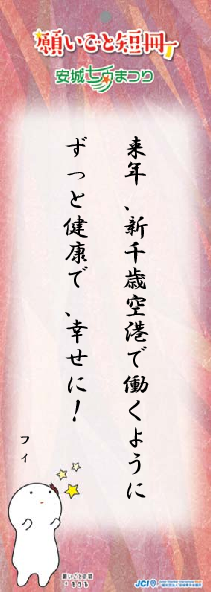 願いごと短冊
安城七夕まつり
来年、新千歳空港で働くように
ずっと健康で、幸せに！
フィ
願いごと短冊
JCI